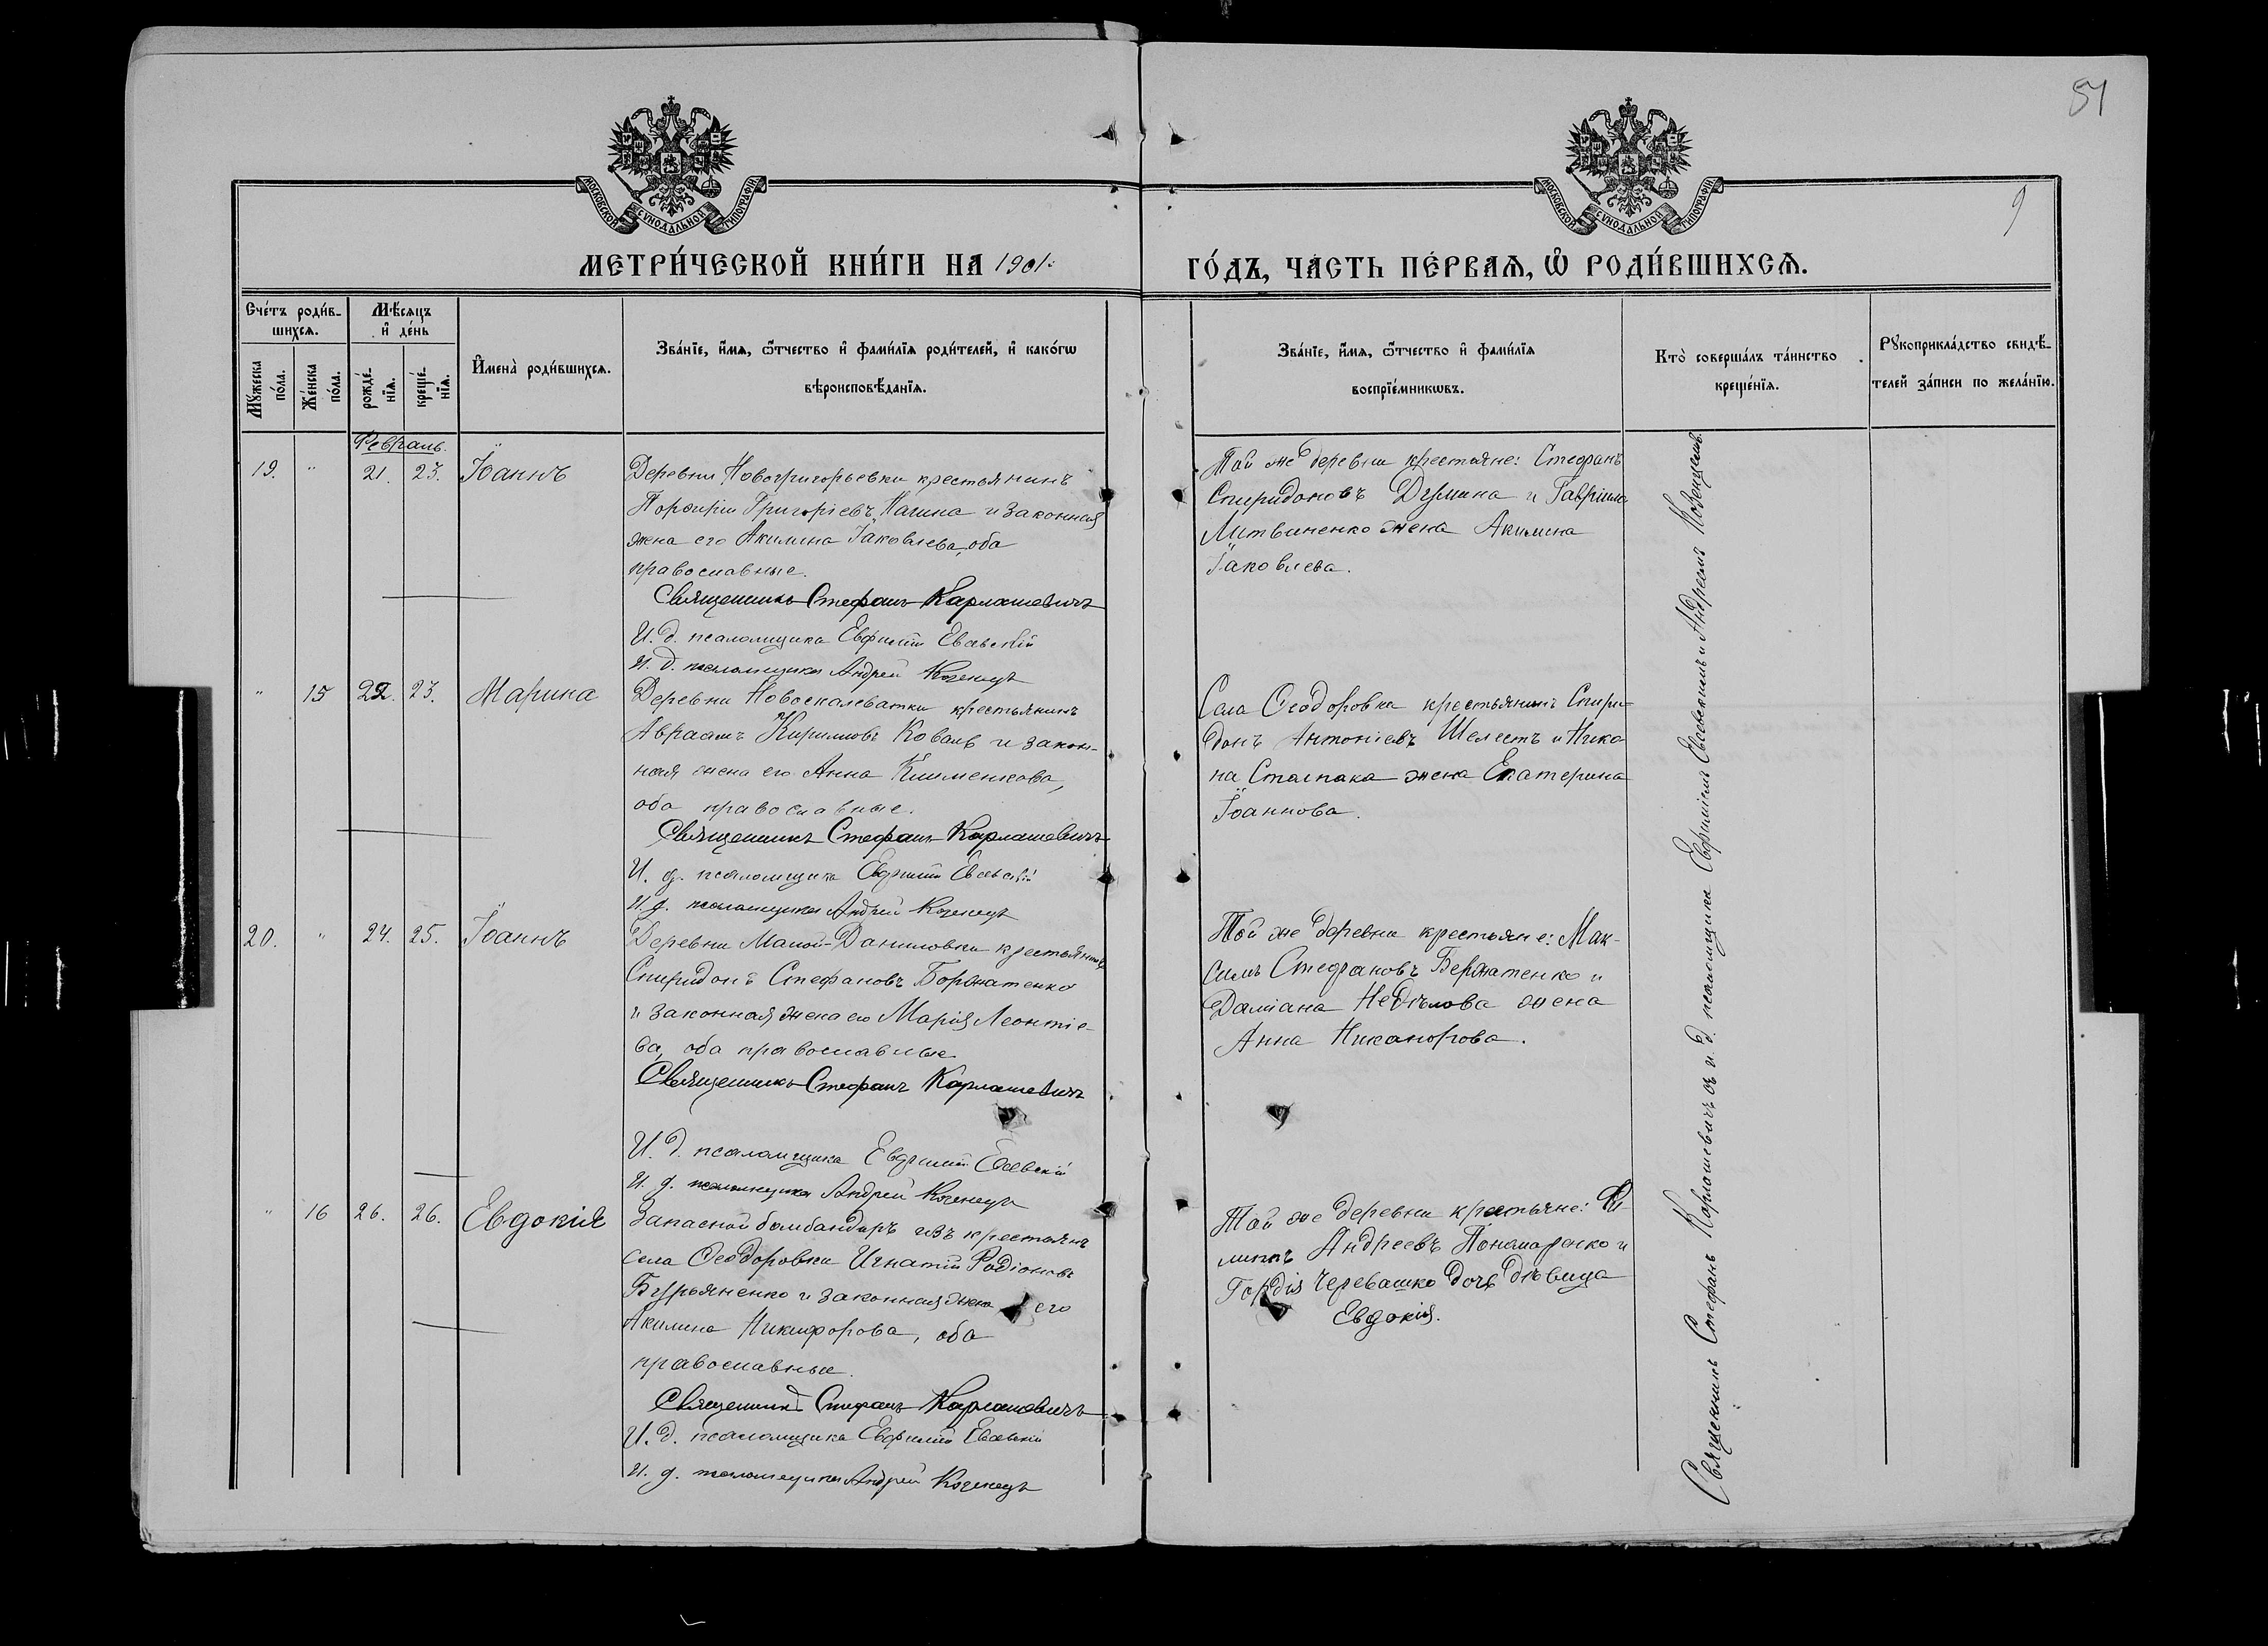 51
9
МОСКОВСКОЙ СѴНОДАЛЬНОЙ ТИПОГРАФІИ
МОСКОВСКОЙ СѴНОДАЛЬНОЙ ТИПОГРАФІИ
МЕТРИ́ЧЕСКОЙ КНИ́ГИ НА 1901
ГО́ДЪ, ЧА́СТЬ ПЕ́РВАѦ, Ѽ РОДИ́ВШИХСѦ.
Сче́тъ роди́в-
шихсѧ.
Мѣ́сѧцъ
и҆ де́нь
Мꙋ́жеска
по́ла.
Же́нска
по́ла.
рожде́-
нїѧ.
креще́-
нїѧ.
И҆мена̀ роди́вшихсѧ.
Зва́нїе, и҆́мѧ, ѻ҆́тчество и҆ фами́лїѧ роди́телей, и҆ како́гѡ
вѣроисповѣ́данїѧ.
Зва́нїе, и҆́мѧ, ѻ҆́тчество и҆ фами́лїѧ
воспрїе́мникѡвъ.
Кто̀ соверша́лъ та́инство
креще́нїѧ.
Рꙋкоприкла́дство свидѣ́-
телей за́писи по жела́нїю.
Февраль.
19. " 21. 23. Іоаннъ
Деревни Новогригорьевки крестьянинъ
Порфирій Григоріевъ Нагина и законная
жена его Акилина Іаковлева, оба
православные.
Священникъ Стефанъ Карлашевичъ
И. д. псаломщика Евфимій Евсевскій
И. д. псаломщика Андрей
Той же деревни крестьяне: Стефанъ
Спиридоновъ Думина и Гавріила
Литвиненко жена Акилина
Іаковлева.
" 15 22. 23. Марина
Деревни Новоскалеватки крестьянинъ
Авраамъ Кирилловъ Коваль и закон-
ная жена его Анна Климентова,
оба православные.
Священникъ Стефанъ Карлашевичъ
И. д. псаломщика Евфимій Евсевскій
И. д. псаломщика Андрей
Села Ѳеодоровки крестьянинъ Спири-
донъ Антоніевъ Шелестъ и Нико-
на жена Екатерина
Іоаннова.
20. " 24. 25. Іоаннъ
Деревни Малой-Даниловки крестьянинъ
Спиридонъ Стефановъ
и законная жена его Марія Леонтіе-
ва, оба православные
Священникъ Стефанъ Карлашевичъ
И. д. псаломщика Евфимій Евсевскій
И. д. псаломщика Андрей
Той же деревни крестьяне: Мак-
симъ Стефановъ и
Даміана Недѣлова жена
Анна Никанорова.
" 16 26. 26. Евдокія
Запасной бомбандиръ изъ крестьянъ
села Ѳеодоровки Игнатій Родіоновъ
Бурьяненко и законная жена его
Акилина Никифорова, оба
православные.
Священникъ Стефанъ Карлашевичъ
И. д. псаломщика Евфимій Евсевскій
И. д. псаломщика Андрей
Той же деревни крестьяне: Фи-
липпъ Андреевъ Пономаренко и
Гордія Черевашко дочь дѣвица
Евдокія.
Священникъ Стефанъ Карлашевичъ съ и. д. псаломщика Евфиміемъ Евсевскимъ и Андреемъ